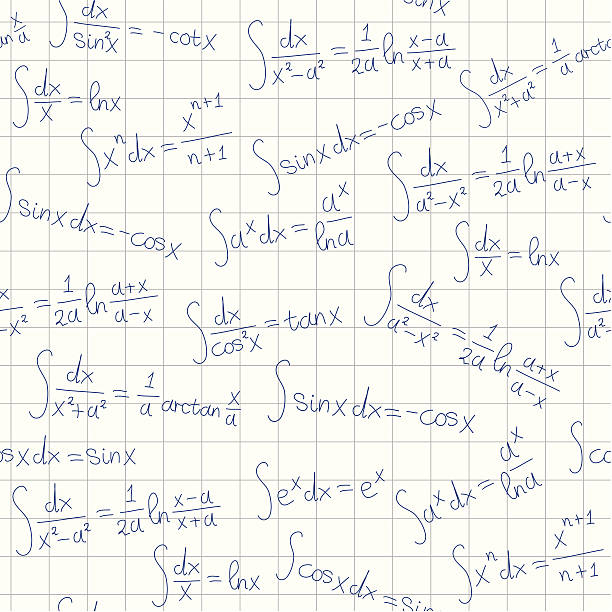 ∫ dx/sin²x = -cotx
sinx
∫ dx/(x²-a²) = 1/2a ln (x-a)/(x+a)
∫ dx/(x²+a²) = 1/a arcta
∫ dx/x = lnx
∫ xⁿ dx = xⁿ⁺¹/(n+1)
∫ sinx dx = -cosx
∫ dx/(a²-x²) = 1/2a ln (a+x)/(a-x)
∫ sinx dx = -cosx
∫ aˣ dx = aˣ/lna
∫ dx/x = lnx
-x² = 1/2a ln (a+x)/(a-x)
∫ dx/cos²x = tanx
∫ dx/(a²-x²) = 1/2a ln (a+x)/(a-x)
∫ dx/(x²+a²) = 1/a arctan x/a
∫ sinx dx = -cosx
osx dx = sinx
∫ eˣ dx = eˣ
∫ aˣ dx = aˣ/lna
∫ co
∫ dx/(x²-a²) = 1/2a ln (x-a)/(x+a)
∫ dx/x = lnx
∫ cosx dx = sin
∫ xⁿ dx = xⁿ⁺¹/(n+1)